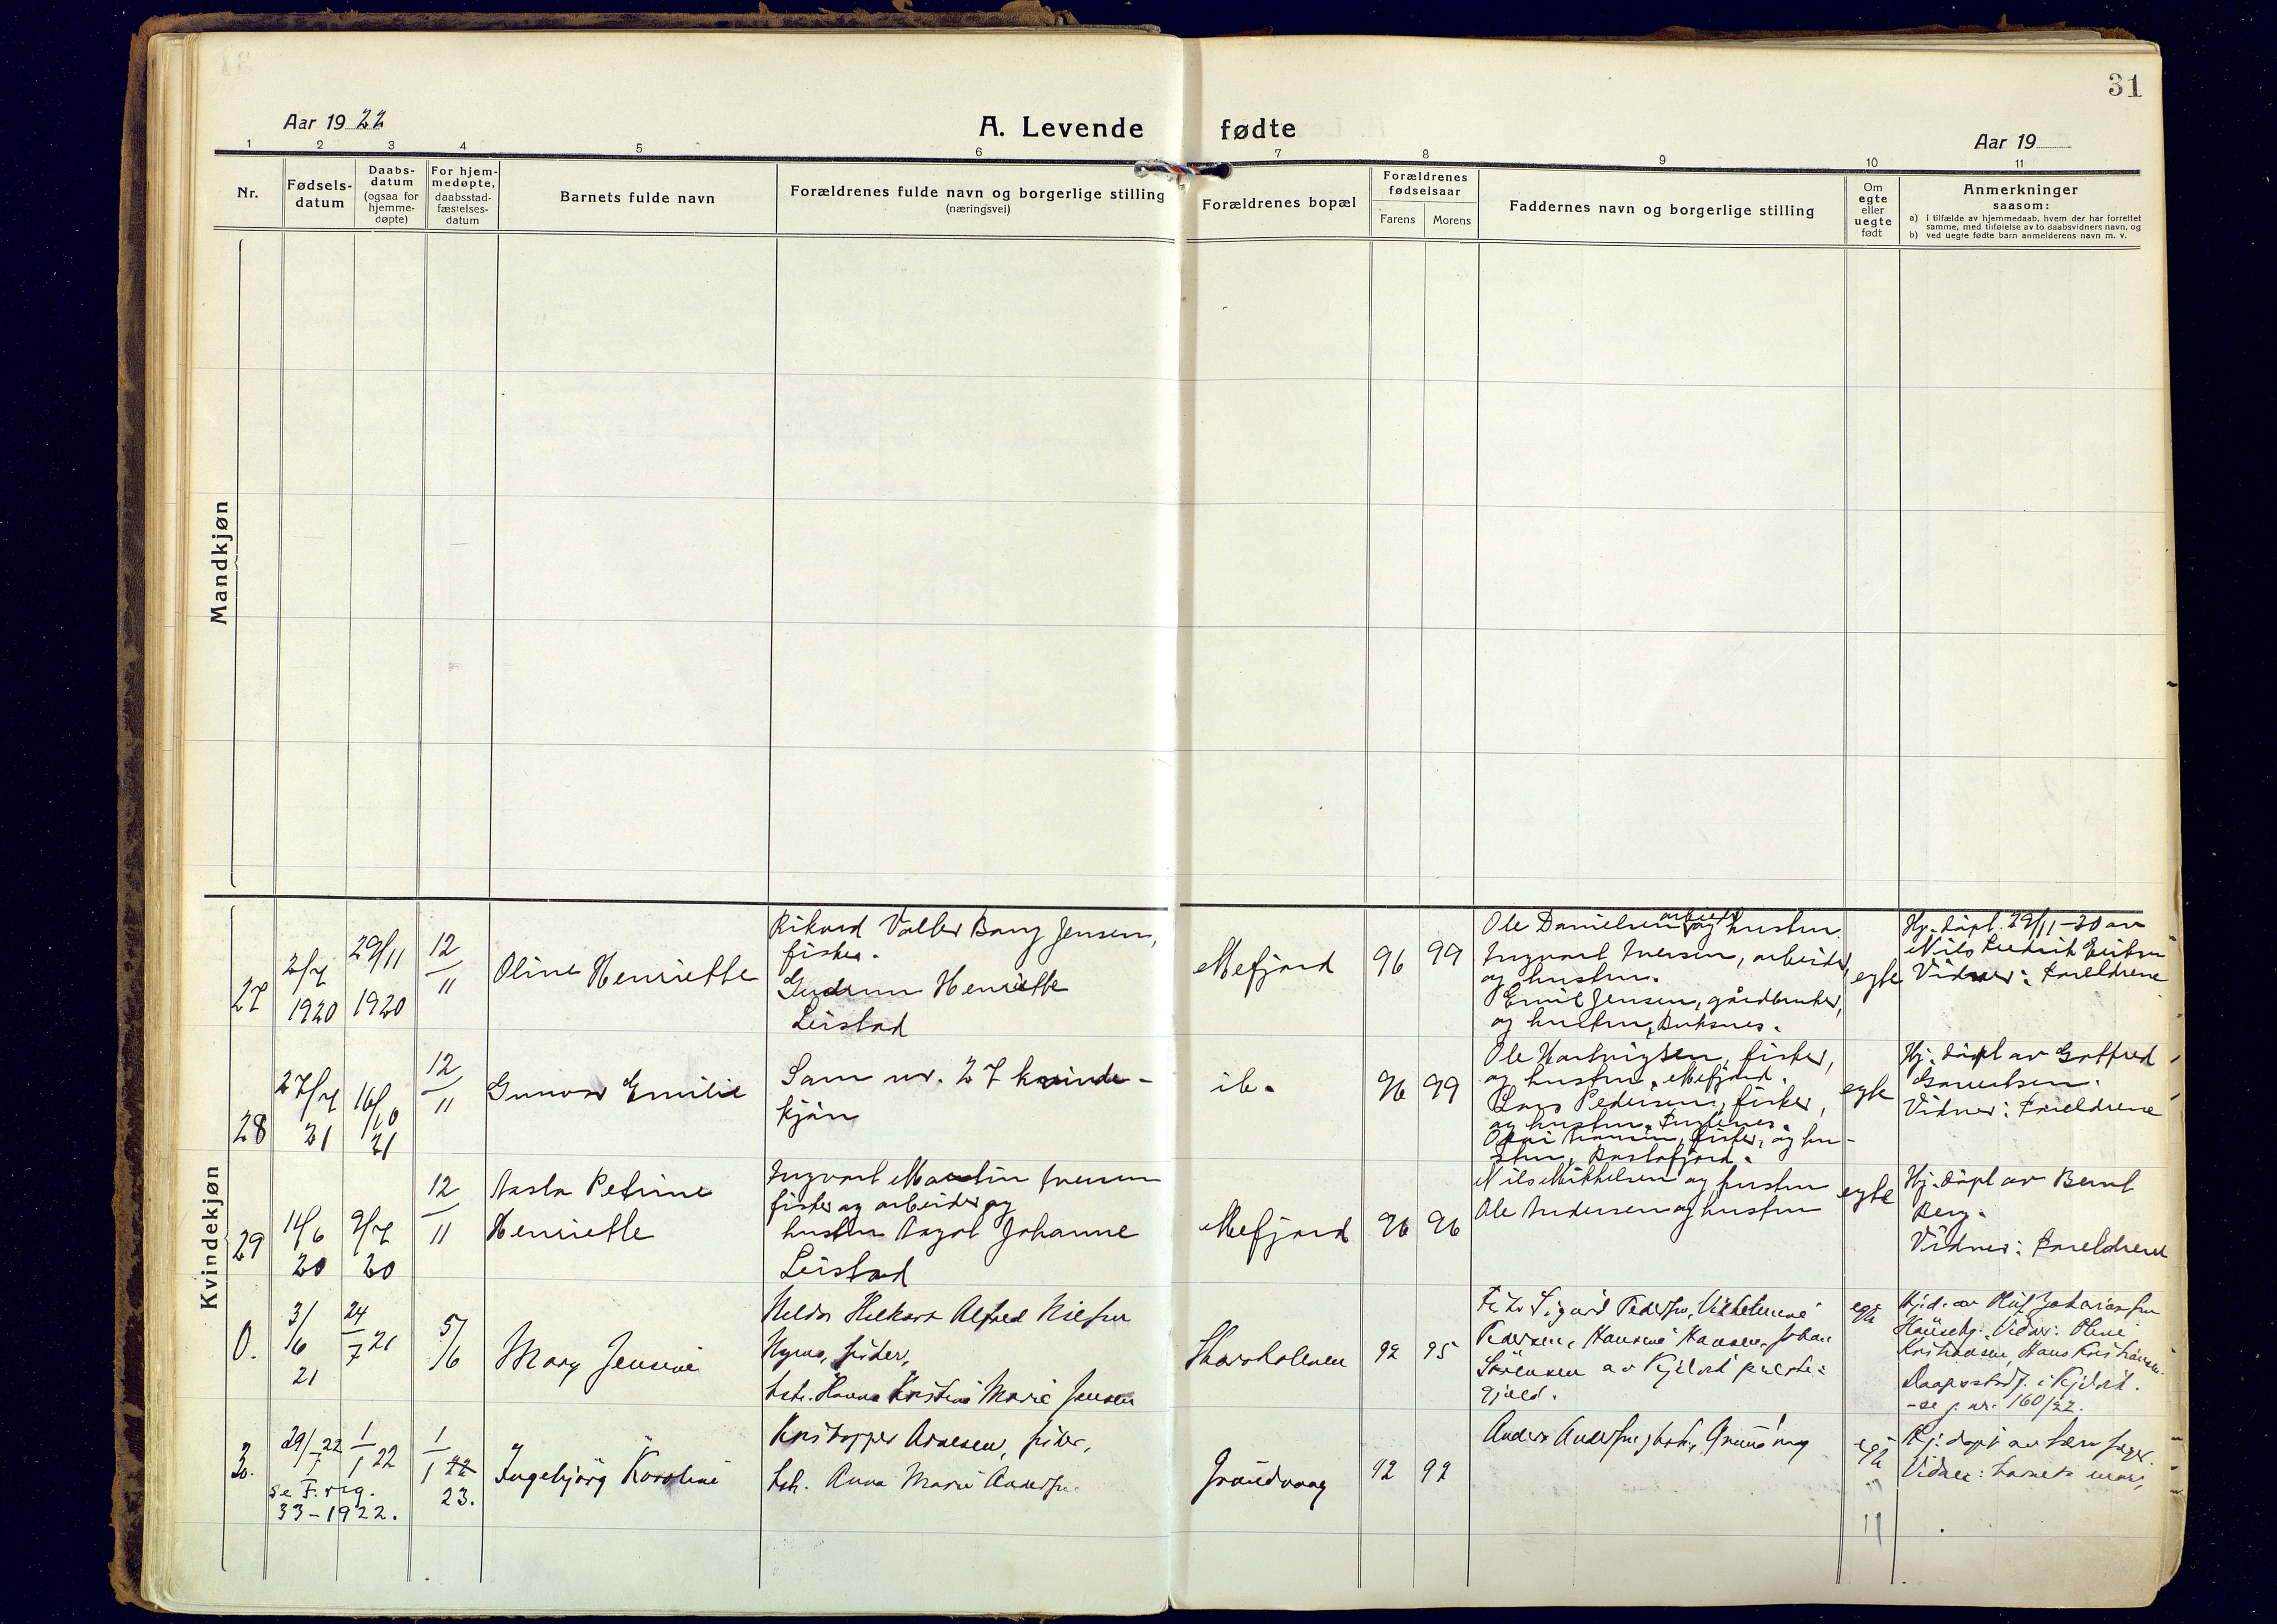 31
Aar 1922
A. Levende fødte
Aar 19
1 2 3 4 5 6 7 8 9 10 11
Nr.
Fødsels-
datum
Daabs-
datum
(ogsaa for
hjemme-
døpte)
For hjem-
medøpte,
daabsstad-
fæstelses-
datum
Barnets fulde navn
Forældrenes fulde navn og borgerlige stilling
(næringsvei)
Forældrenes bopæl
Forældrenes
fødselsaar
Farens Morens
Faddernes navn og borgerlige stilling
Om
egte
eller
uegte
født
Anmerkninger
saasom:
a) i tilfælde av hjemmedaab, hvem der har forrettet
samme, med tilføielse av to daabsvidners navn, og
b) ved uegte fødte barn anmelderens navn m. v.
Mandkjøn
Kvindekjøn
27
2/7
1920
29/11
1920
12
11
Oline Henriette
Rikard Valter Bang Jensen,
fisker.
Gudrun Henriette
Leistad
Mefjord
96 99
Ole Danielsen arbeider og hustru
Ingvart Iversen, arbeider,
og hustru.
Emil Jensen, gårdbruker,
og hustru, Buksnes.
egte
Hj. døpt 29/11-20 av
Nils Fredrik
Vidner: Foreldrene
28
27/7
21
16/10
21
12
11
Gunvor Emilie
Sam nr. 27 kvinde-
kjøn
ib.
96 99
Ole Hartvigsen, fisker,
og hustru, Mefjord.
Lars Pedersen, fisker,
og hustru,
fisker, og hu-
stru,
egte
Hj. døpt av Gotfred
Vidner: Foreldrene
29
11/6
20
9/7
20
12
11
Aasta Petrine
Henriette
Ingvart Martin Iversen
fisker og arbeider og
hustru Johanne
Leistad
Mefjord
96 96
Nils Mikkelsen og hustru
Ole Andersen og hustru
egte
Hj. døpt av Bernt
Berg.
Vidner: Foreldrene
0.
3/6
21
24
7 21
5/6
Mary Jensine
Alfred
fisker,
Kristine Marie Jensen
92 95
Sigurd
Pedersen, Hansine Hansen, Johan
Sørensen av
gjeld.
egte
Hjd. av
Vidner: Oline
Kristiansen, Hans Kristiansen.
i
-se j. nr. 160/22.
3
29/22
7
1
1 22
1
1 22
23.
se F. reg.
33-1922.
Ingebjørg Karoline
Kristoffer Arnesen, fisker,
Anna Marie
92 92
egte
Hj. døpt av
Vidner: barnets mor,